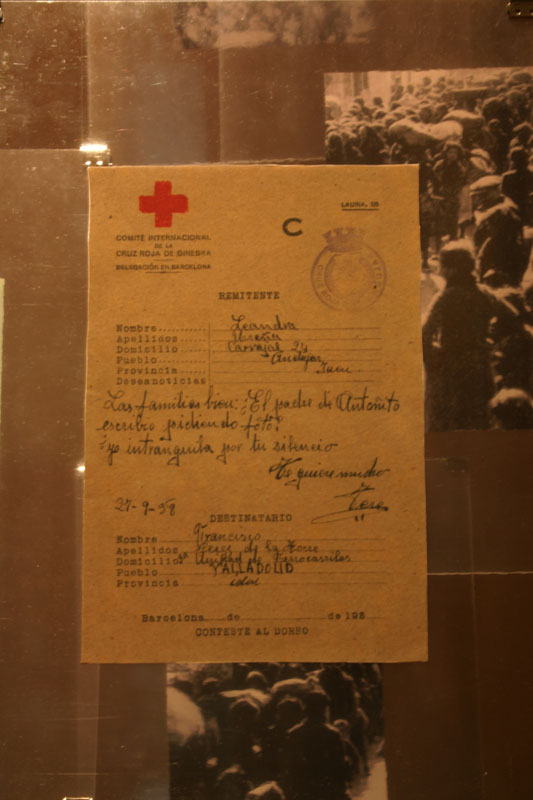 LAURIA, 95
C
COMITE INTERNACIONAL
DE LA
CRUZ ROJA DE GINEBRA
DELEGACIÓN EN BARCELONA
REMITENTE
Nombre......... Leandra
Apellidos
Domicilio...... Carvajal 24
Pueblo......... Andujar
Provincia...... Jaen
Deseanoticias
Las familias bien: ¿El padre de Antoñito
escribo pidiendo foto?
yo intranquila por tu silencio
Te quiere mucho
27-9-38
DESTINATARIO
Nombre Francisco
Apellidos Perez de la Torre
Domicilio Unidad de Ferrocarriles
Pueblo VALLADOLID
Provincia idem
Barcelona.....de..................de 193
CONTESTE AL DORSO